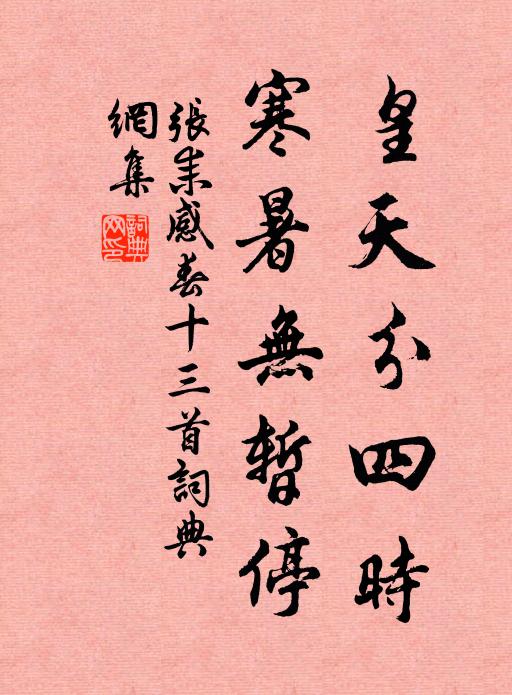 皇天分四時
寒暑無暫停
張耒感春十三首詞典
網集
詞典
网印